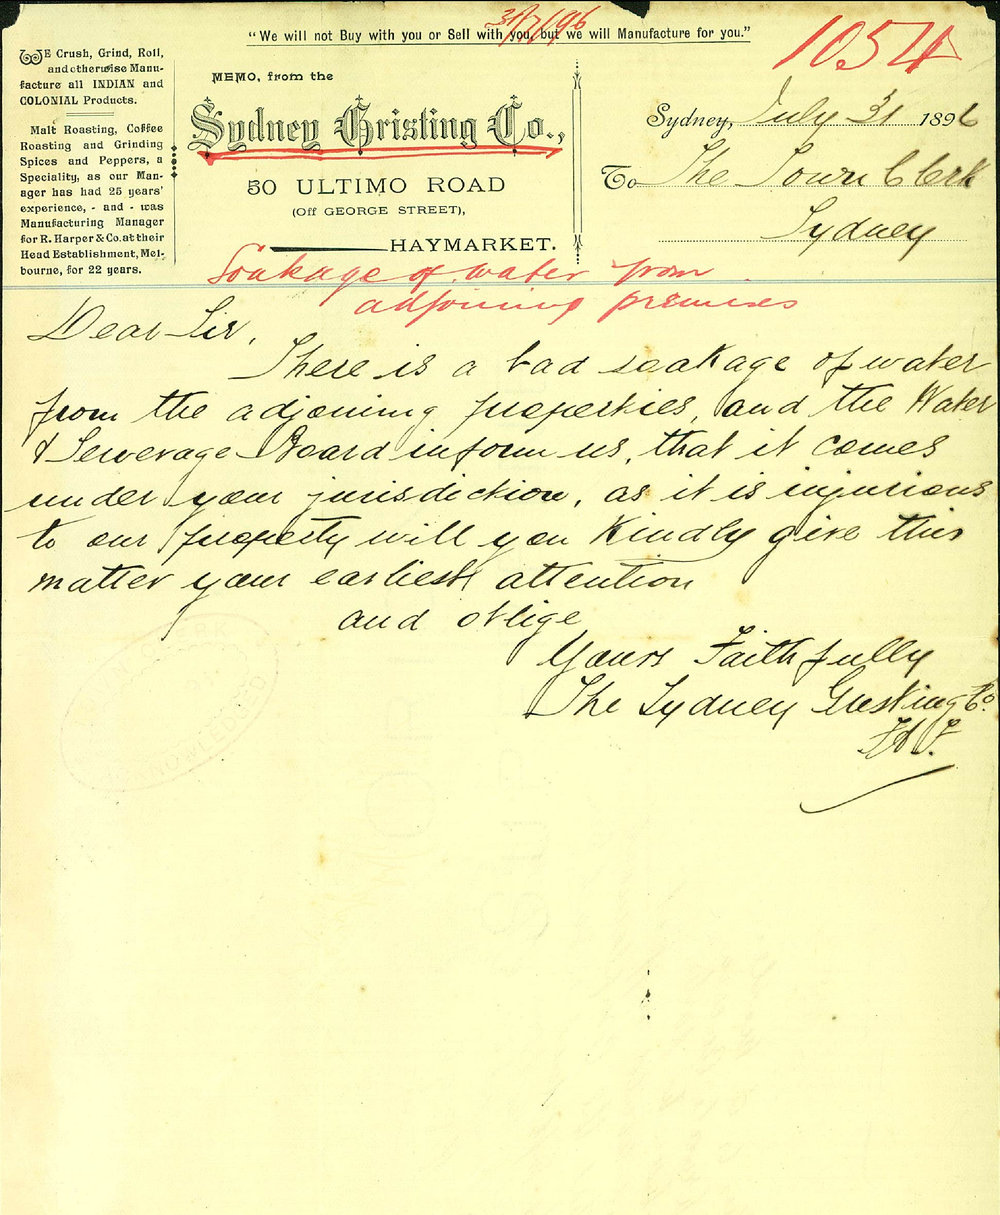 31/7/96
"We will not Buy with you or Sell with you, but we will Manufacture for you."
1054
WE Crush, Grind, Roll,
and otherwise Manu-
facture all INDIAN and
COLONIAL Products.
Malt Roasting, Coffee
Roasting and Grinding
Spices and Peppers, a
Speciality, as our Man-
ager has had 25 years'
experience, - and - was
Manufacturing Manager
for R. Harper & Co. at their
Head Establishment, Mel-
bourne, for 22 years.
MEMO, from the
Sydney Gristing Co.,
50 ULTIMO ROAD
(Off GEORGE STREET),
HAYMARKET.
Sydney, July 31 1896
To The Town Clerk
Sydney
Soakage of water from
adjoining premises
Dear Sir,
There is a bad soakage of water
from the adjoining properties, and the Water
& Sewerage Board inform us, that it comes
under your jurisdiction, as it is injurious
to our property will you Kindly give this
matter your earliest attention
and oblige
Yours Faithfully
The Sydney Gristing Co.
TOWN CLERK